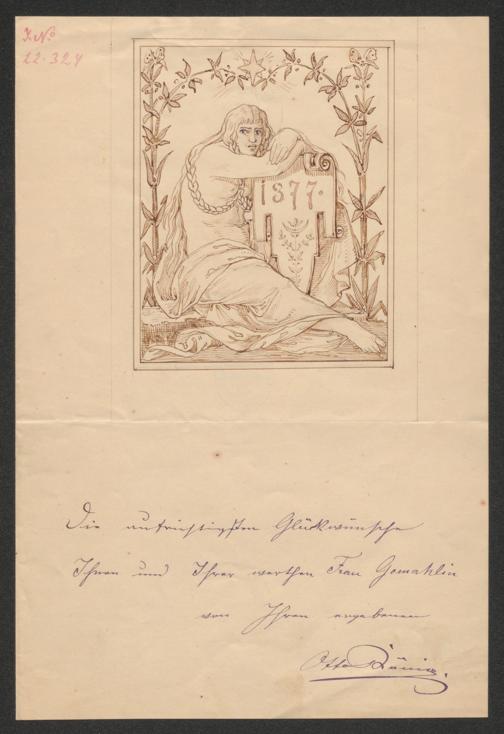 I.N.
22.324
1877.
Die aufrichtigsten Glückwünsche
Ihnen und Ihrer werthen Frau Gemahlin
von Ihrem ergebenen
Otto König.